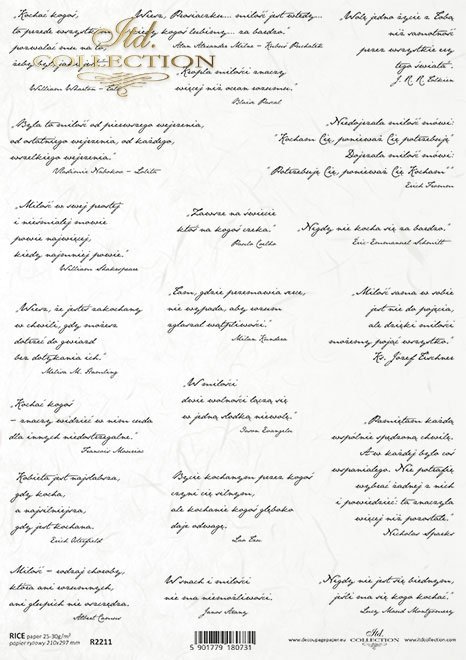 Kochać kogoś,
to przede wszystkim
pozwalać mu na to,
żeby był, jaki jest.
William Wharton - Tato
Wiesz, Prosiaczku... miłość jest wtedy...
kiedy kogoś lubimy... za bardzo.
Alan Alexander Milne - Kubuś Puchatek
Itd.
COLLECTION
Kropla miłości znaczy
więcej niż ocean rozumu.
Blaise Pascal
"Wolę jedno życie z Tobą
niż samotność
przez wszystkie ery
tego świata".
J. R. R. Tolkien
„Była to miłość od pierwszego wejrzenia,
od ostatniego wejrzenia, od każdego,
wszelkiego wejrzenia."
Vladimir Nabokov - Lolita
Niedojrzała miłość mówi:
"Kocham Cię, ponieważ Cię potrzebuję"
Dojrzała miłość mówi:
"Potrzebuję Cię, ponieważ Cię Kocham"
Erich Fromm
„Miłość w swej prostej
i nieśmiałej mowie
powie najwięcej,
kiedy najmniej powie."
William Shakespeare
"Zawsze na świecie
ktoś na kogoś czeka."
Paulo Coelho
„Nigdy nie kocha się za bardzo."
Eric-Emmanuel Schmitt
Wiesz, że jesteś zakochany
w chwili, gdy możesz
dotrzeć do gwiazd
bez dotykania ich."
Melisa M. Hamling
„Tam, gdzie przemawia serce,
nie wypada, aby rozum
zgłaszał wątpliwości."
Milan Kundera
„Miłość sama w sobie
jest nie do pojęcia,
ale dzięki miłości
możemy pojąć wszystko."
Ks. Józef Tischner
„Kochać kogoś
– znaczy widzieć w nim cuda
dla innych niedostrzegalne."
Francois Mauriac
„W miłości
dwie wolności łączą się
w jedną słodką niewolę."
Jason Evangelu
„Pamiętam każdą
wspólnie spędzoną chwilę.
A w każdej było coś
wspaniałego. Nie potrafię
wybrać żadnej z nich
i powiedzieć: ta znaczyła
więcej niż pozostałe."
Nicholas Sparks
Kobieta jest najsłabsza,
gdy kocha,
a najsilniejsza,
gdy jest kochana.
Erich Osterfield
Bycie kochanym przez kogoś
czyni cię silnym,
ale kochanie kogoś głęboko
daje odwagę.
Lao Tzu
Miłość – rodzaj choroby,
która ani rozumnych,
ani głupich nie oszczędza.
Albert Camus
W snach i miłości
nie ma niemożliwości.
Janos Arany
„Nigdy nie jest się biednym,
jeśli ma się kogo kochać."
Lucy Maud Montgomery
RICE paper 25-30g/m²
papier ryżowy 210x297 mm
R2211
5 901779 180731
www.decoupagepaper.eu
Itd.
COLLECTION
www.itdcollection.com